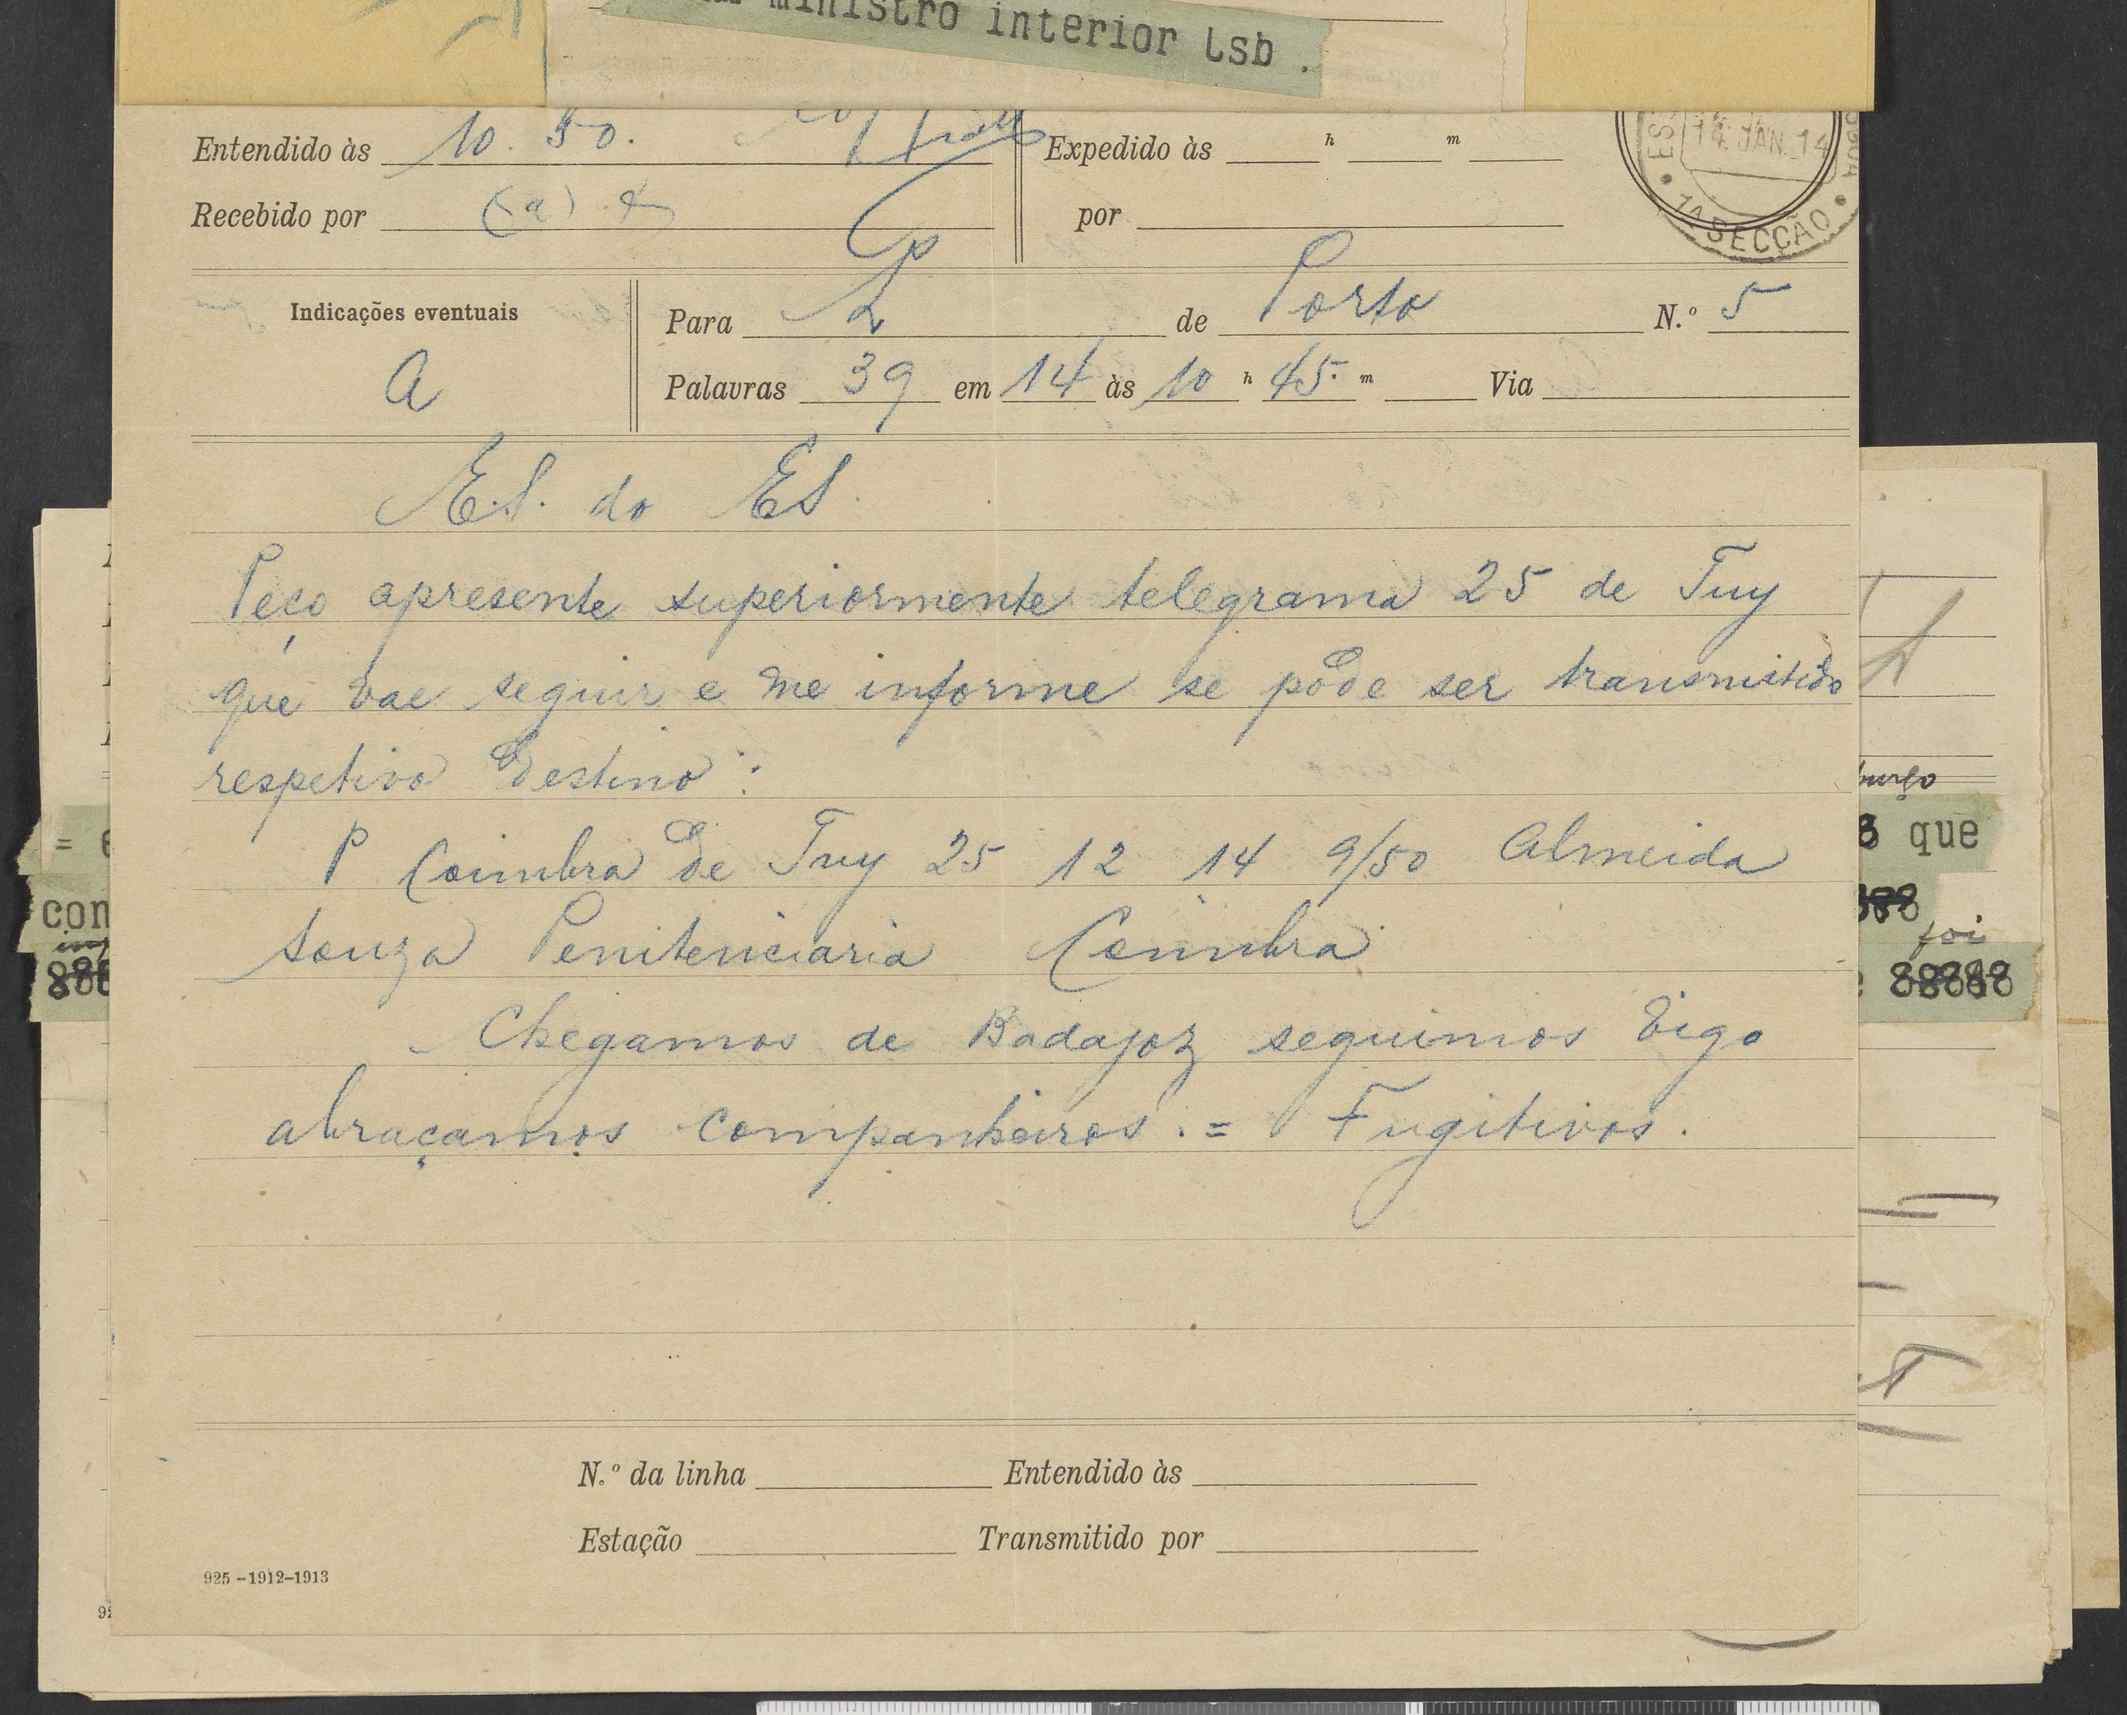 ministro interior Lsb .
Entendido às 10. 50. Expedido às h m
14 JAN. 14
1ª SECÇÃO
Recebido por (a) por
Indicações eventuais
A
Para L de Porto N.º 5
Palavras 39 em 14 às 10 h 45 m Via
E.S. do ES
Peço apresente superiormente telegrama 25 de Tuy
que vae seguir e me informe se póde ser transmitido
respetivo destino:
P Coimbra de Tuy 25 12 14 9/50 Almeida
Souza Penitenciaria Coimbra
Chegamos de Badajoz seguimos Vigo
abraçamos companheiros. = Fugitivos.
N.º da linha Entendido às
Estação Transmitido por
925 -1912-1913
que
foi
con